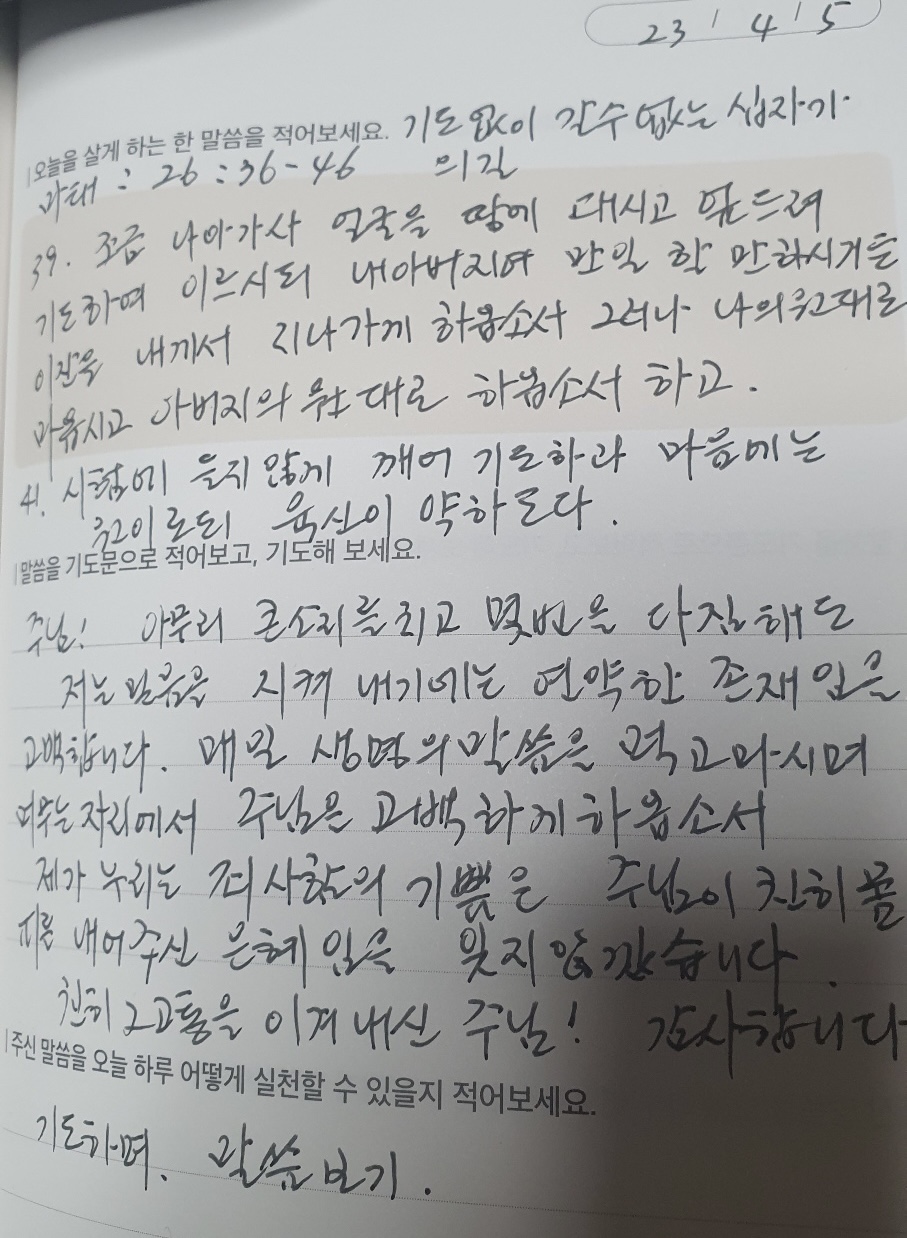 23 / 4 / 5
오늘을 살게 하는 한 말씀을 적어보세요. 기도 없이 갈수 없는 십자가
의길
마태 : 26 : 36 - 46
39. 조금 나아가사 얼굴을 땅에 대시고 엎드려
기도하여 이르시되 내아버지여 만일 할 만하시거든
이잔을 내게서 지나가게 하옵소서 그러나 나의원대로
마옵시고 아버지의 원대로 하옵소서 하고.
41. 시험에 들지 않게 깨어 기도하라 마음에는
원이로되 육신이 약하도다.
말씀을 기도문으로 적어보고, 기도해 보세요.
주님! 아무리 큰소리를 치고 몇번을 다짐해도
저는 믿음을 지켜 내기에는 연약한 존재임을
고백합니다. 매일 생명의 말씀을 먹고마시며
머무는 자리에서 주님을 고백하게 하옵소서
제가 누리는 죄사함의 기쁨은 주님이 친히 몸
피를 내어주신 은혜임을 잊지 않겠습니다.
친히 그고통을 이겨내신 주님! 감사합니다
주신 말씀을 오늘 하루 어떻게 실천할 수 있을지 적어보세요.
기도하며. 말씀보기.